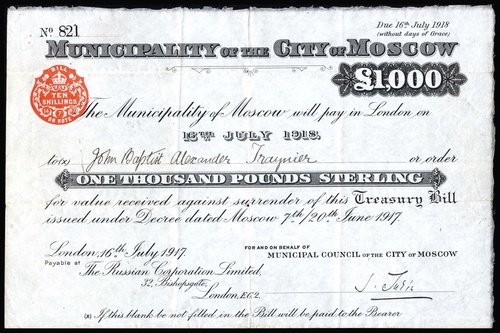 No 821
Due 16th July 1918
(without days of Grace)
MUNICIPALITY OF THE CITY OF MOSCOW
£1,000
BILL
TEN
SHILLINGS
OR NOTE
The Municipality of Moscow will pay in London on
16TH JULY 1918.
to (x) John Baptist Alexander Traynier or order
ONE THOUSAND POUNDS STERLING
for value received against surrender of this Treasury Bill
issued under Decree dated Moscow 7th/20th June 1917.
London, 16th July 1917.
FOR AND ON BEHALF OF
MUNICIPAL COUNCIL OF THE CITY OF MOSCOW
Payable at
The Russian Corporation Limited,
32, Bishopsgate,
London, E.C.2.
(x) If this blank be not filled in the Bill will be paid to the Bearer